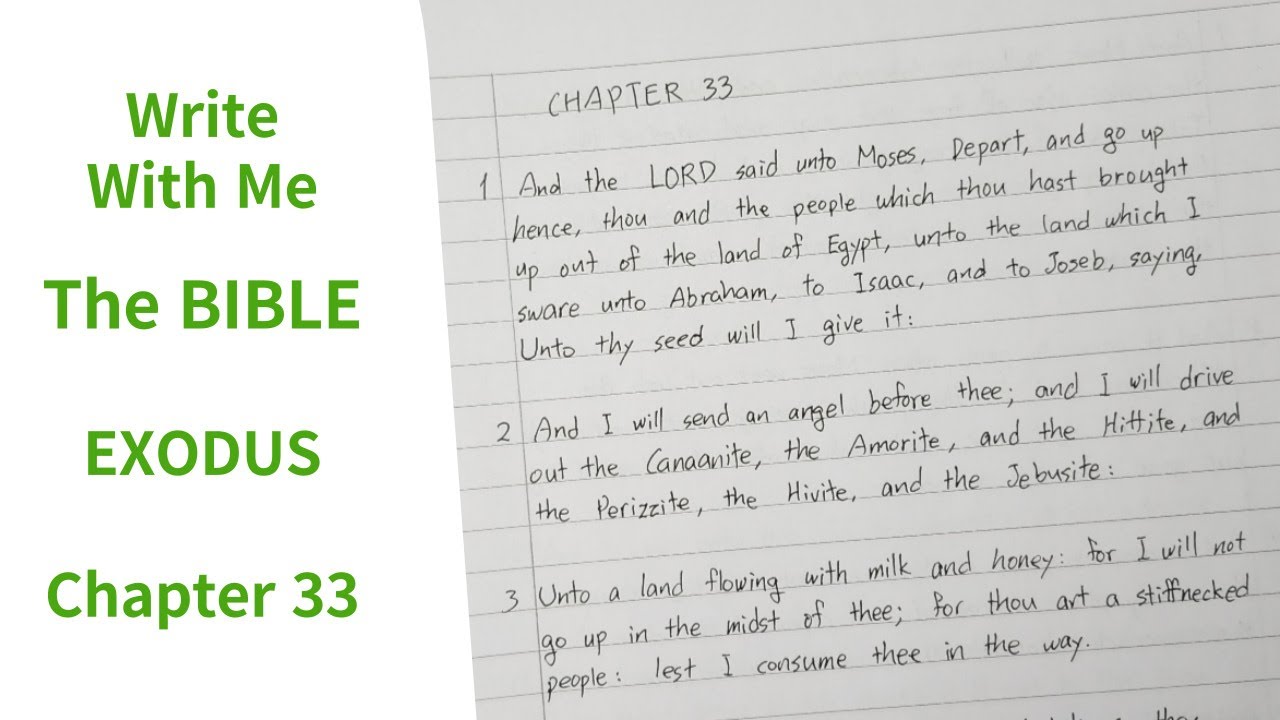 Write
With Me
The BIBLE
EXODUS
Chapter 33
CHAPTER 33
1 And the LORD said unto Moses, Depart, and go up
hence, thou and the people which thou hast brought
up out of the land of Egypt, unto the land which I
sware unto Abraham, to Isaac, and to Joseb, saying,
Unto thy seed will I give it:
2 And I will send an angel before thee; and I will drive
out the Canaanite, the Amorite, and the Hittite, and
the Perizzite, the Hivite, and the Jebusite:
3 Unto a land flowing with milk and honey: for I will not
go up in the midst of thee; for thou art a stiffnecked
people: lest I consume thee in the way.